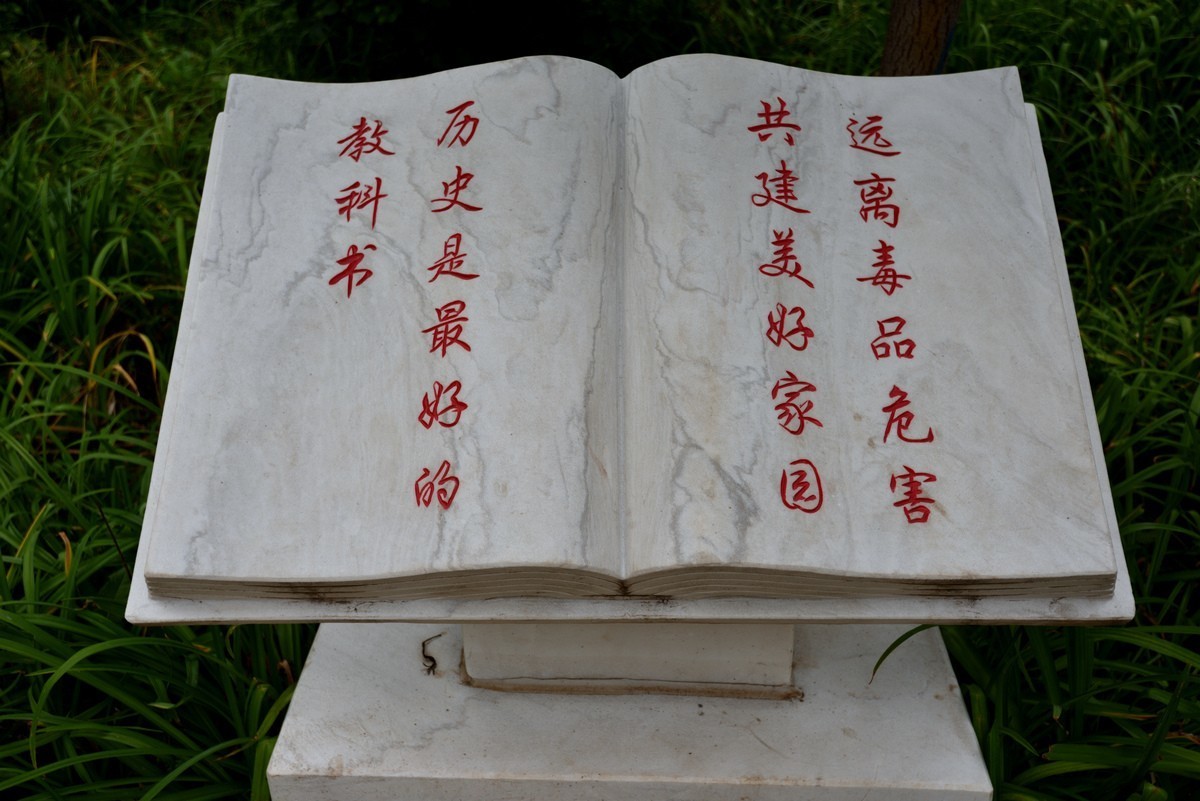 远离毒品危害
共建美好家园
历史是最好的
教科书